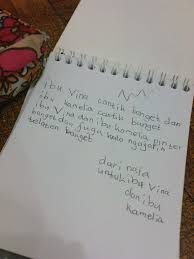 ibu Vina cantik banget dan
ibu kamelia cantik banget
ibu Vina dan ibu kamelia pinter
banget dan juga kalo ngajarin
telaten banget
dari naja
untuk ibu Vina
dan ibu
kamelia